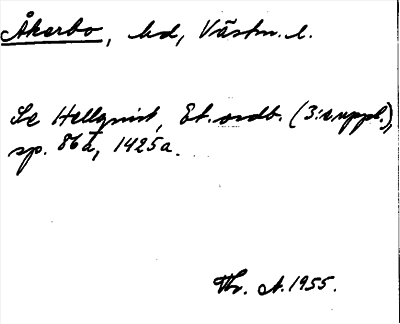 Åkerbo, hd, Västm. l.
Se Hellquist, Et. ordb. (3:e uppl.),
sp. 86a, 1425a.
A. 1955.